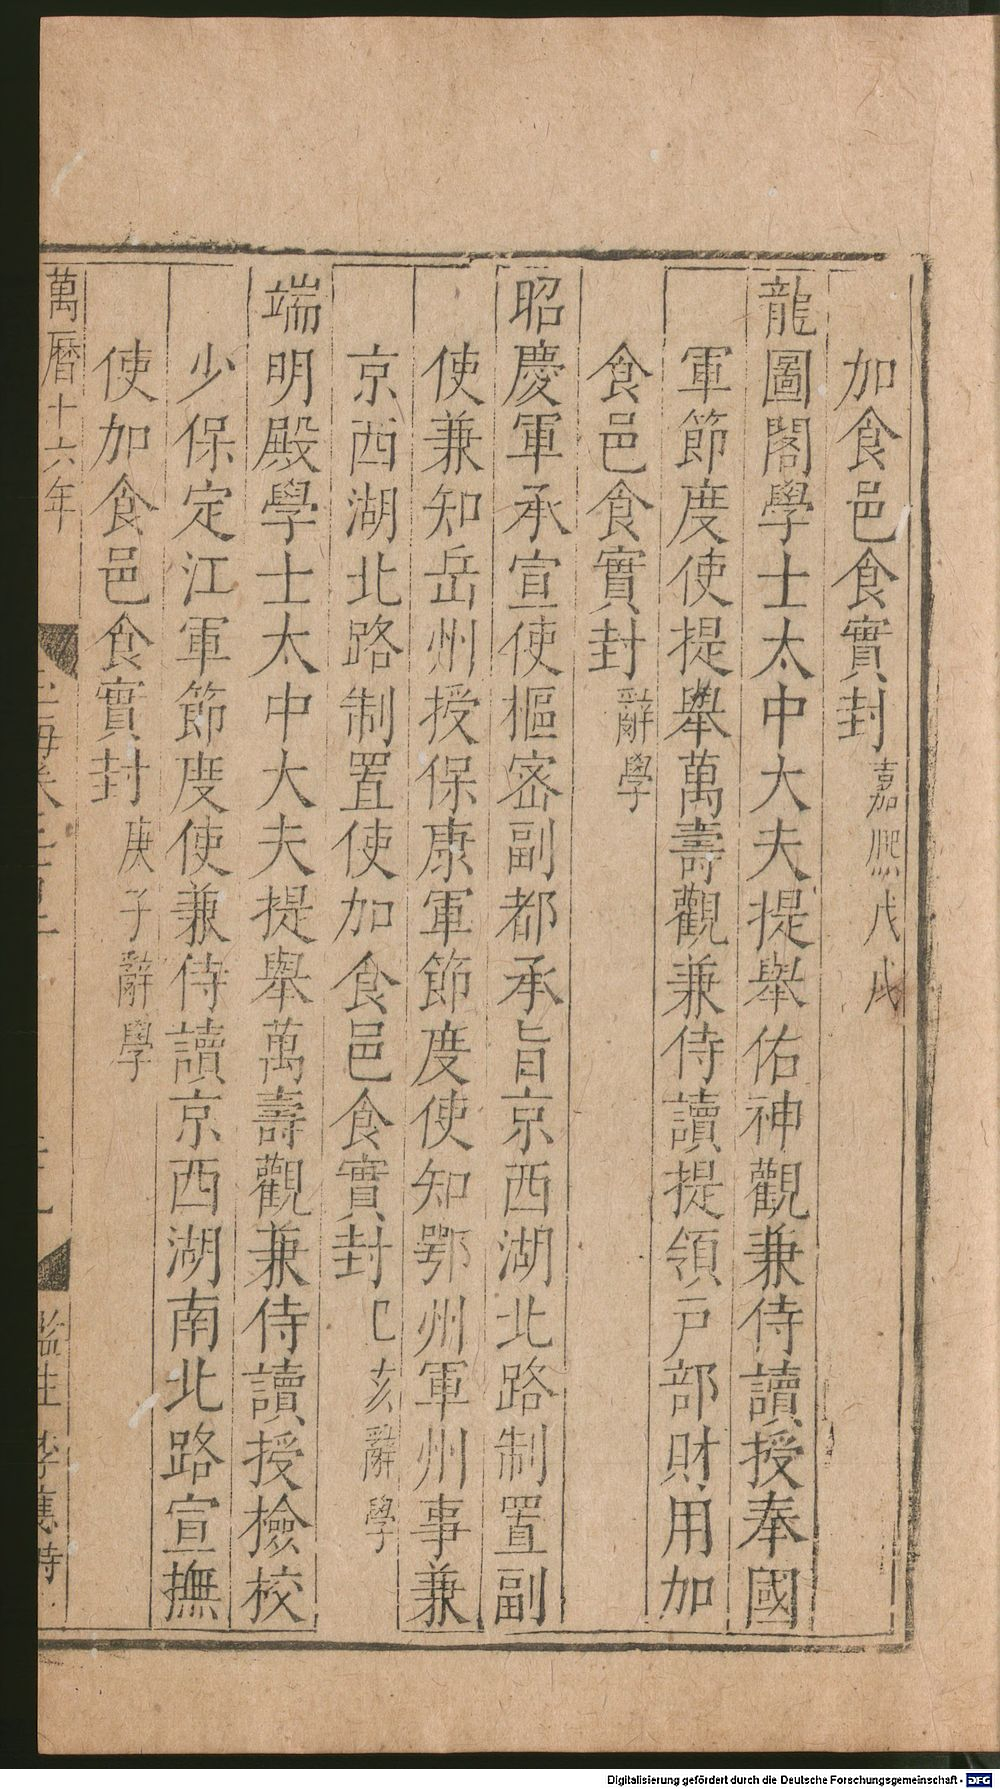 加食邑食實封嘉熙戊戌
龍圖閣學士太中大夫提舉佑神觀兼侍讀授奉國
軍節度使提舉萬壽觀兼侍讀提領戶部財用加
食邑食實封辭學
昭慶軍承宣使樞密副都承旨京西湖北路制置副
使兼知岳州授保康軍節度使知鄂州軍州事兼
京西湖北路制置使加食邑食實封己亥辭學
端明殿學士太中大夫提舉萬壽觀兼侍讀授檢校
少保定江軍節度使兼侍讀京西湖南北路宣撫
使加食邑食實封庚子辭學
萬曆十六年
監生李應時
Digitalisierung gefördert durch die Deutsche Forschungsgemeinschaft - DFG